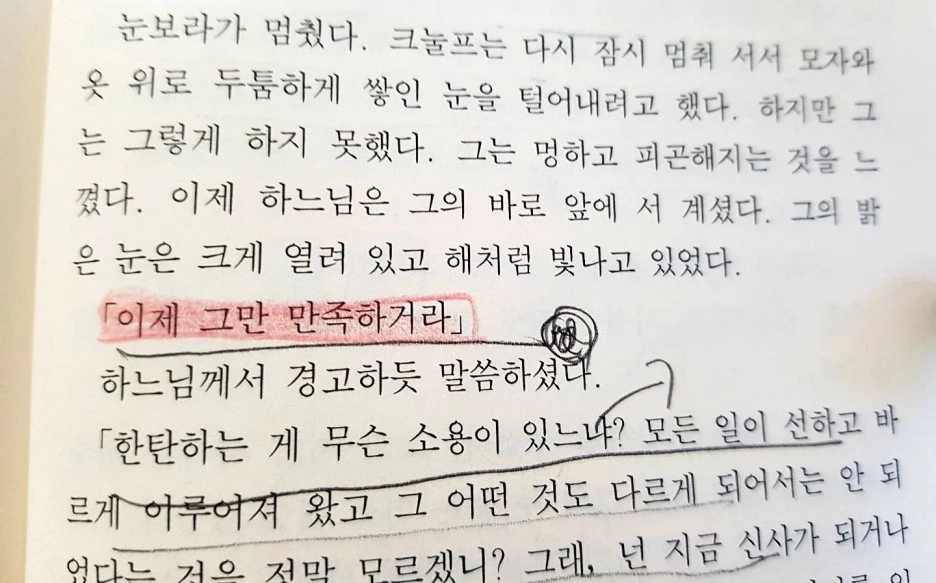 눈보라가 멈췄다. 크눌프는 다시 잠시 멈춰 서서 모자와
옷 위로 두툼하게 쌓인 눈을 털어내려고 했다. 하지만 그
는 그렇게 하지 못했다. 그는 멍하고 피곤해지는 것을 느
꼈다. 이제 하느님은 그의 바로 앞에 서 계셨다. 그의 밝
은 눈은 크게 열려 있고 해처럼 빛나고 있었다.
「이제 그만 만족하거라」
하느님께서 경고하듯 말씀하셨다.
「한탄하는 게 무슨 소용이 있느냐? 모든 일이 선하고 바
르게 이루어져 왔고 그 어떤 것도 다르게 되어서는 안 되
었다는 것을 정말 모르겠니? 그래, 넌 지금 신사가 되거나